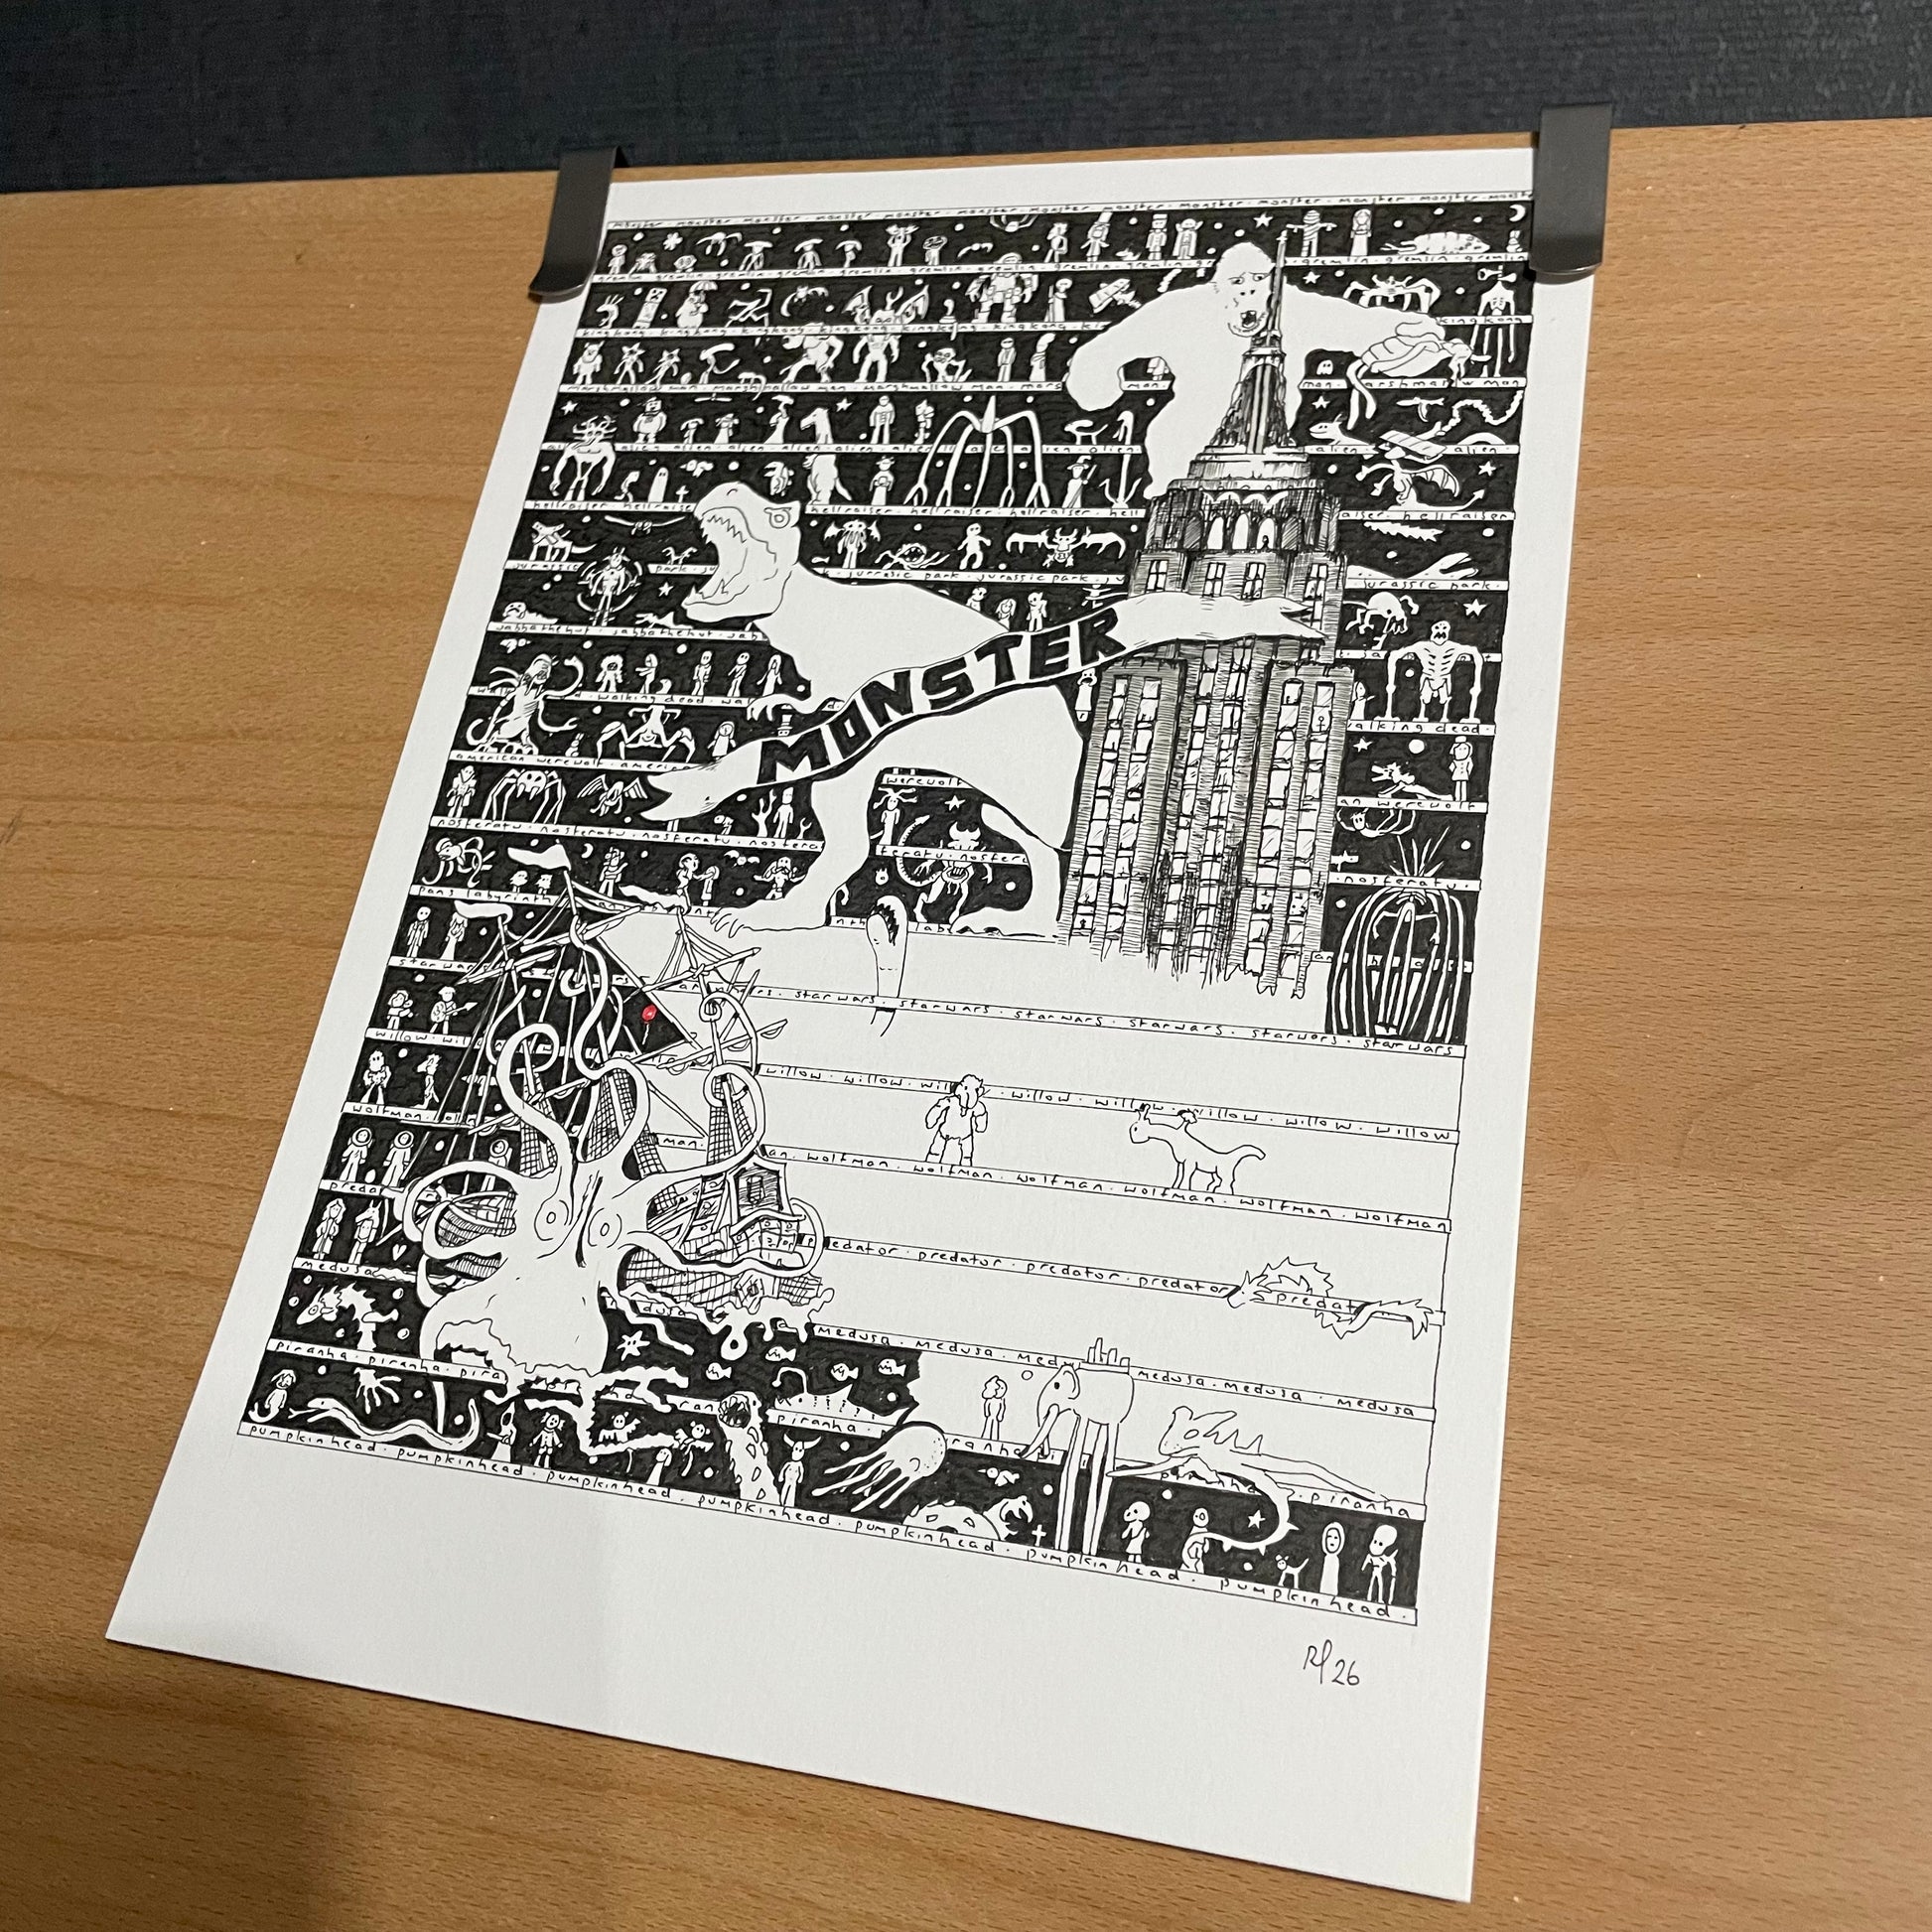 monster · monster · monster · monster · monster · monster · monster · monster · monster · monster · monster · monster
gremlin · gremlin · gremlin · gremlin · gremlin · gremlin · gremlin · gremlin · gremlin
kingkong · kingkong · kingkong · kingkong · kingkong
marshmallow man · marshmallow man · marshmallow man · man
alien · alien · alien · alien · alien · alien
hellraiser · hellraiser · hellraiser · hellraiser · hellraiser · hell hellraiser
jurassic park · jurassic park · jurassic park · jurassic park
jabbathehut · jabbathehut · jab
MONSTER
walking dead · walking dead
american werewolf · werewolf werewolf
nosferatu · nosferatu · nosferatu · nosfera nosferatu
pans labyrinth
star wars · star wars · star wars · star wars · star wars · star wars · star wars
willow · willow · willow · willow · willow · willow · willow
wolfman · wolfman · wolfman · wolfman · wolfman · wolfman
predator · predator · predator · predator · predat
medusa · medusa · medusa · medusa · medusa · medusa
piranha · piranha · pira piranha · piranha
pumpkinhead · pumpkinhead · pumpkinhead · pumpkinhead · pumpkinhead · pumpkinhead · pumpkinhead ·
26